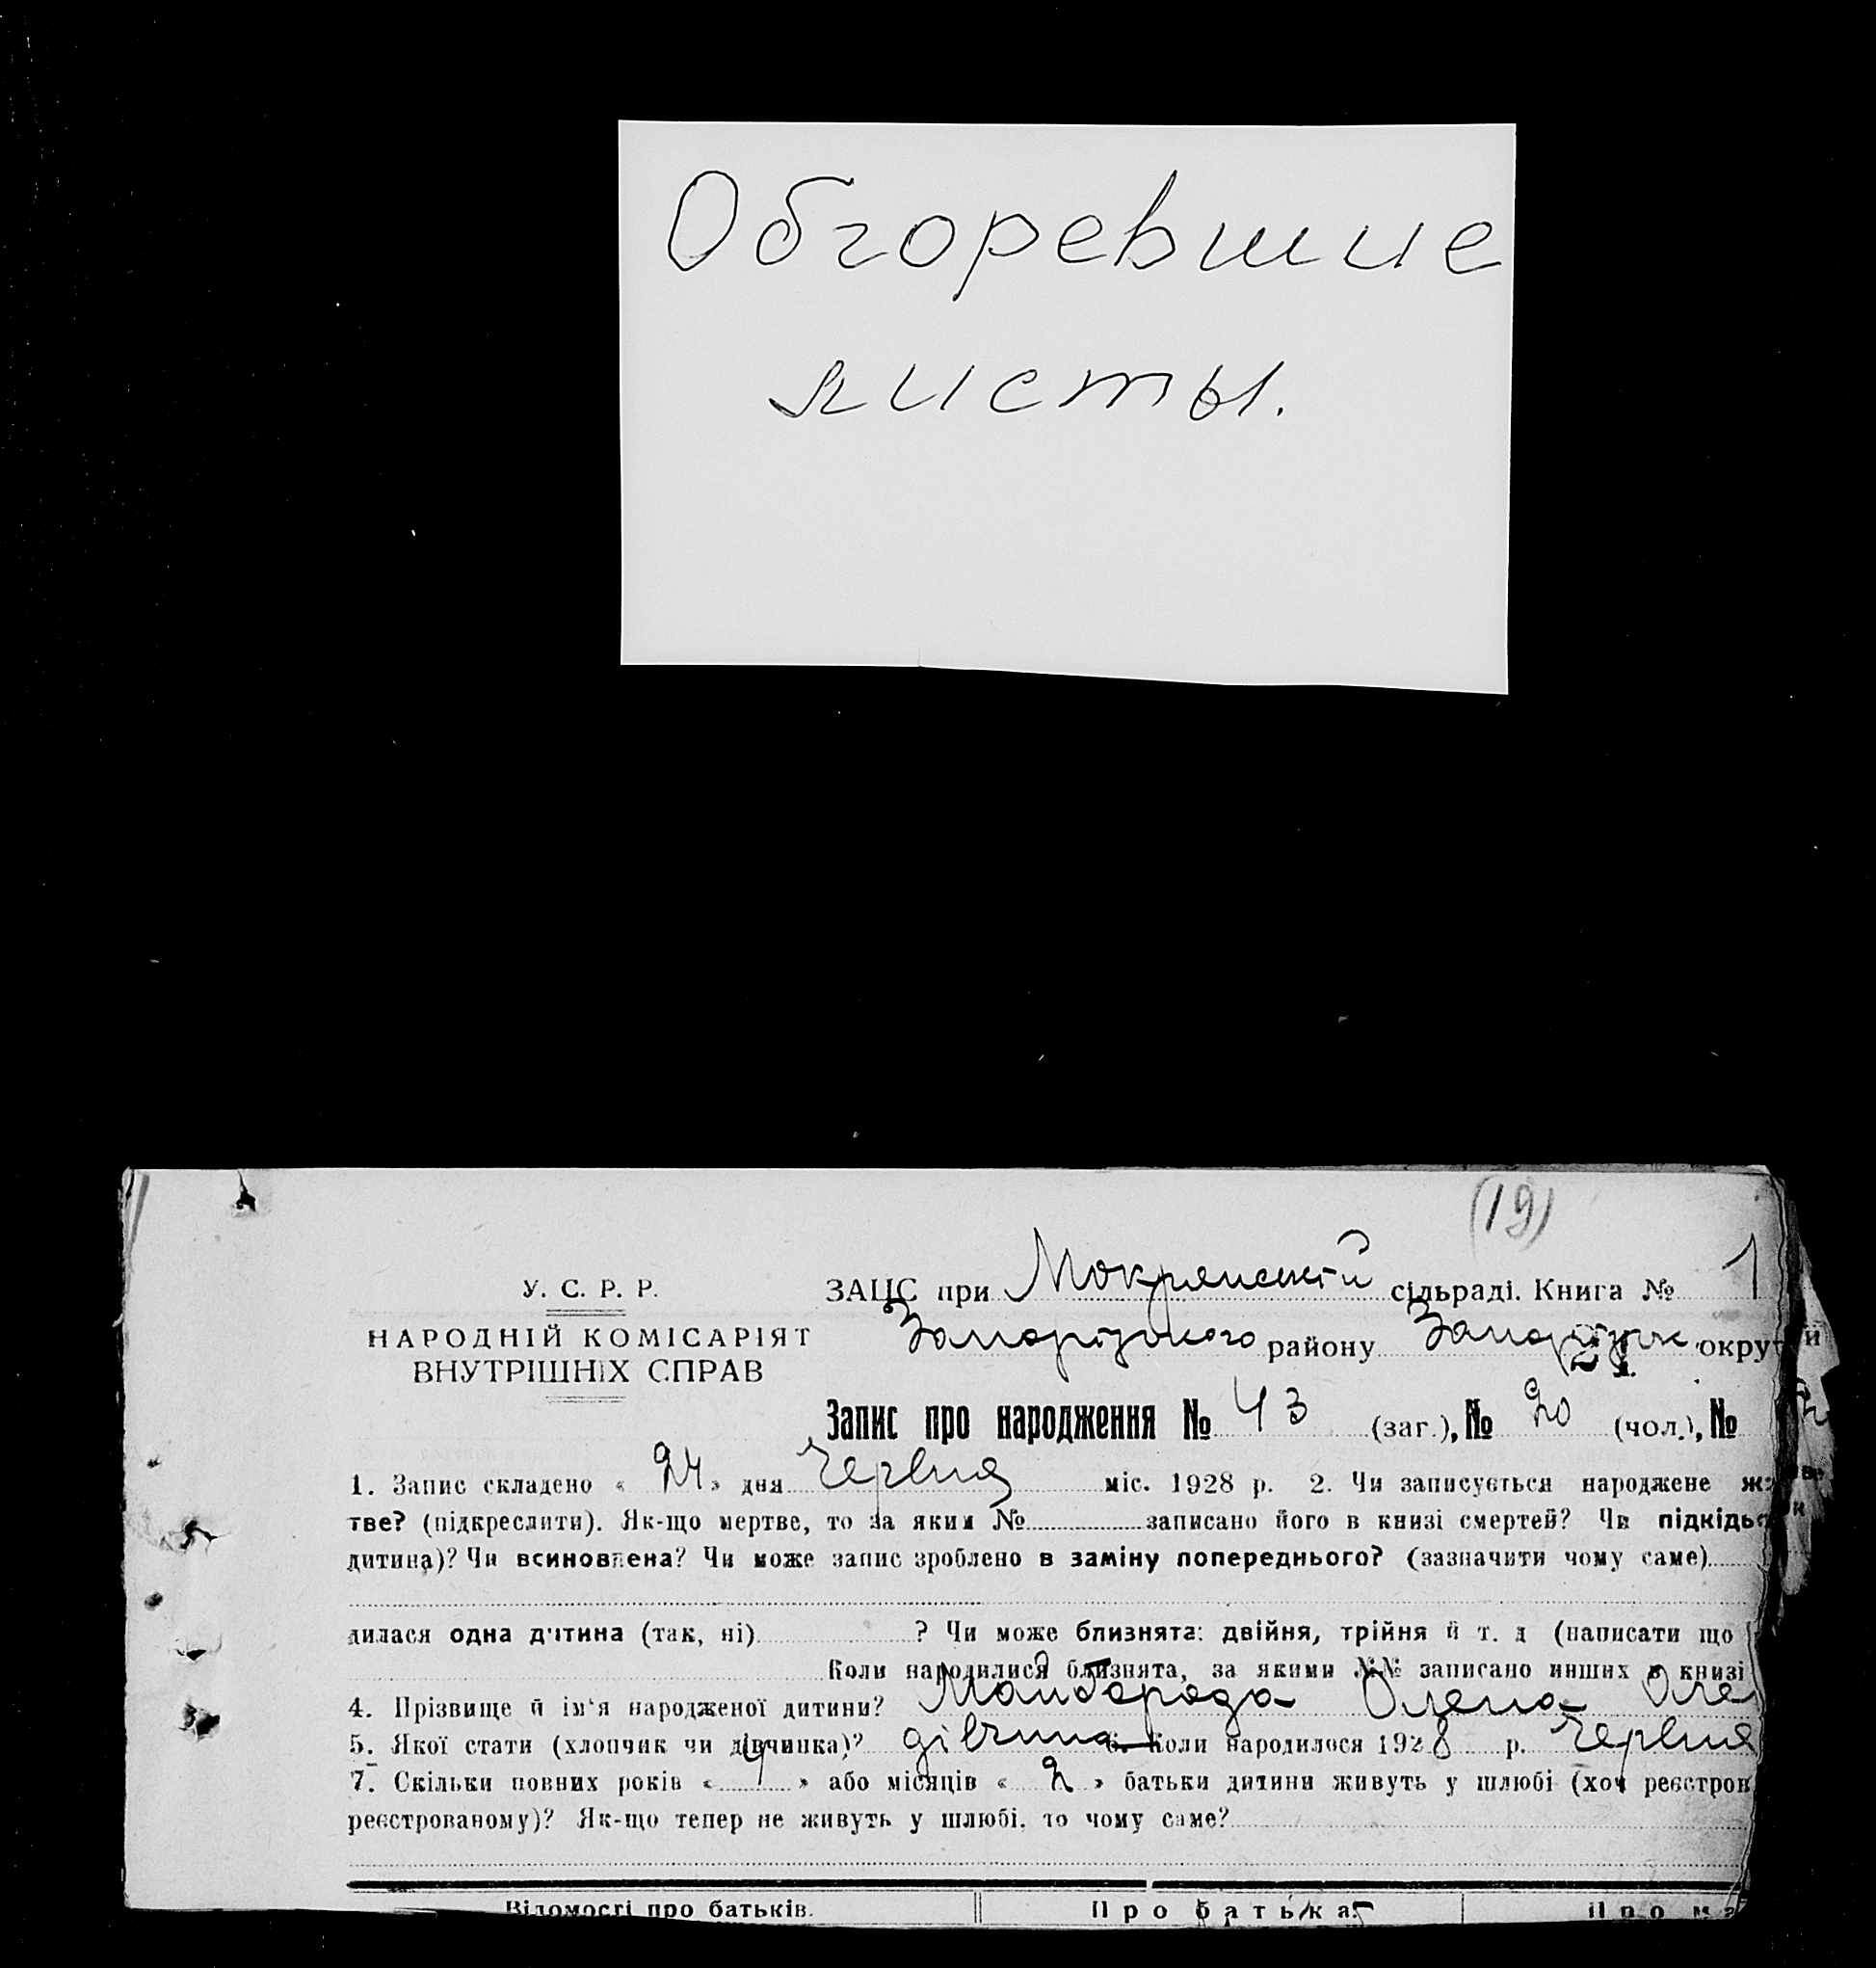 Обгоревшие
листы.
(19)
У. С. Р. Р.
НАРОДНІЙ КОМІСАРІЯТ
ВНУТРІШНІХ СПРАВ
ЗАЦС при Мокрянській сільраді. Книга № 1
Запорізького району Запорізьк. округ
21
Запис про народження № 43 (заг.), № 20 (чол.), №
1. Запис складено « 24 » дня Червня міс. 1928 р. 2. Чи записується народжене
тве? (підкреслити). Як-що мертве, то за яким № записано його в книзі смертей? Чи підкідь
дитина)? Чи всиновлена? Чи може запис зроблено в заміну попереднього? (зазначити чому саме)
дилася одна дитина (так, ні) ? Чи може близнята: двійня, трійня й т. д (написати що
Коли народилися близнята, за якими №№ записано инших в книзі
4. Прізвище й ім'я народженої дитини? Майборода Олена Оле
5. Якої стати (хлопчик чи дівчинка)? дівчина 6. Коли народилося 1928 р. Червня
7. Скільки повних років « » або місяців « 2 » батьки дитини живуть у шлюбі (хоч реєстров
реєстрованому)? Як-що тепер не живуть у шлюбі, то чому саме?
Відомості про батьків. Про батька Про ма